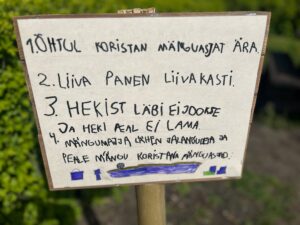 1. ÕHTUL KORISTAN MÄNGUASJAT ÄRA.
2. LIIVA PANEN LIIVAKASTI.
3. HEKIST LÄBI EI JOOKSE
JA HEKI PEAL EI LAMA.
4. JA
PEALE MÄNGU KORISTAN